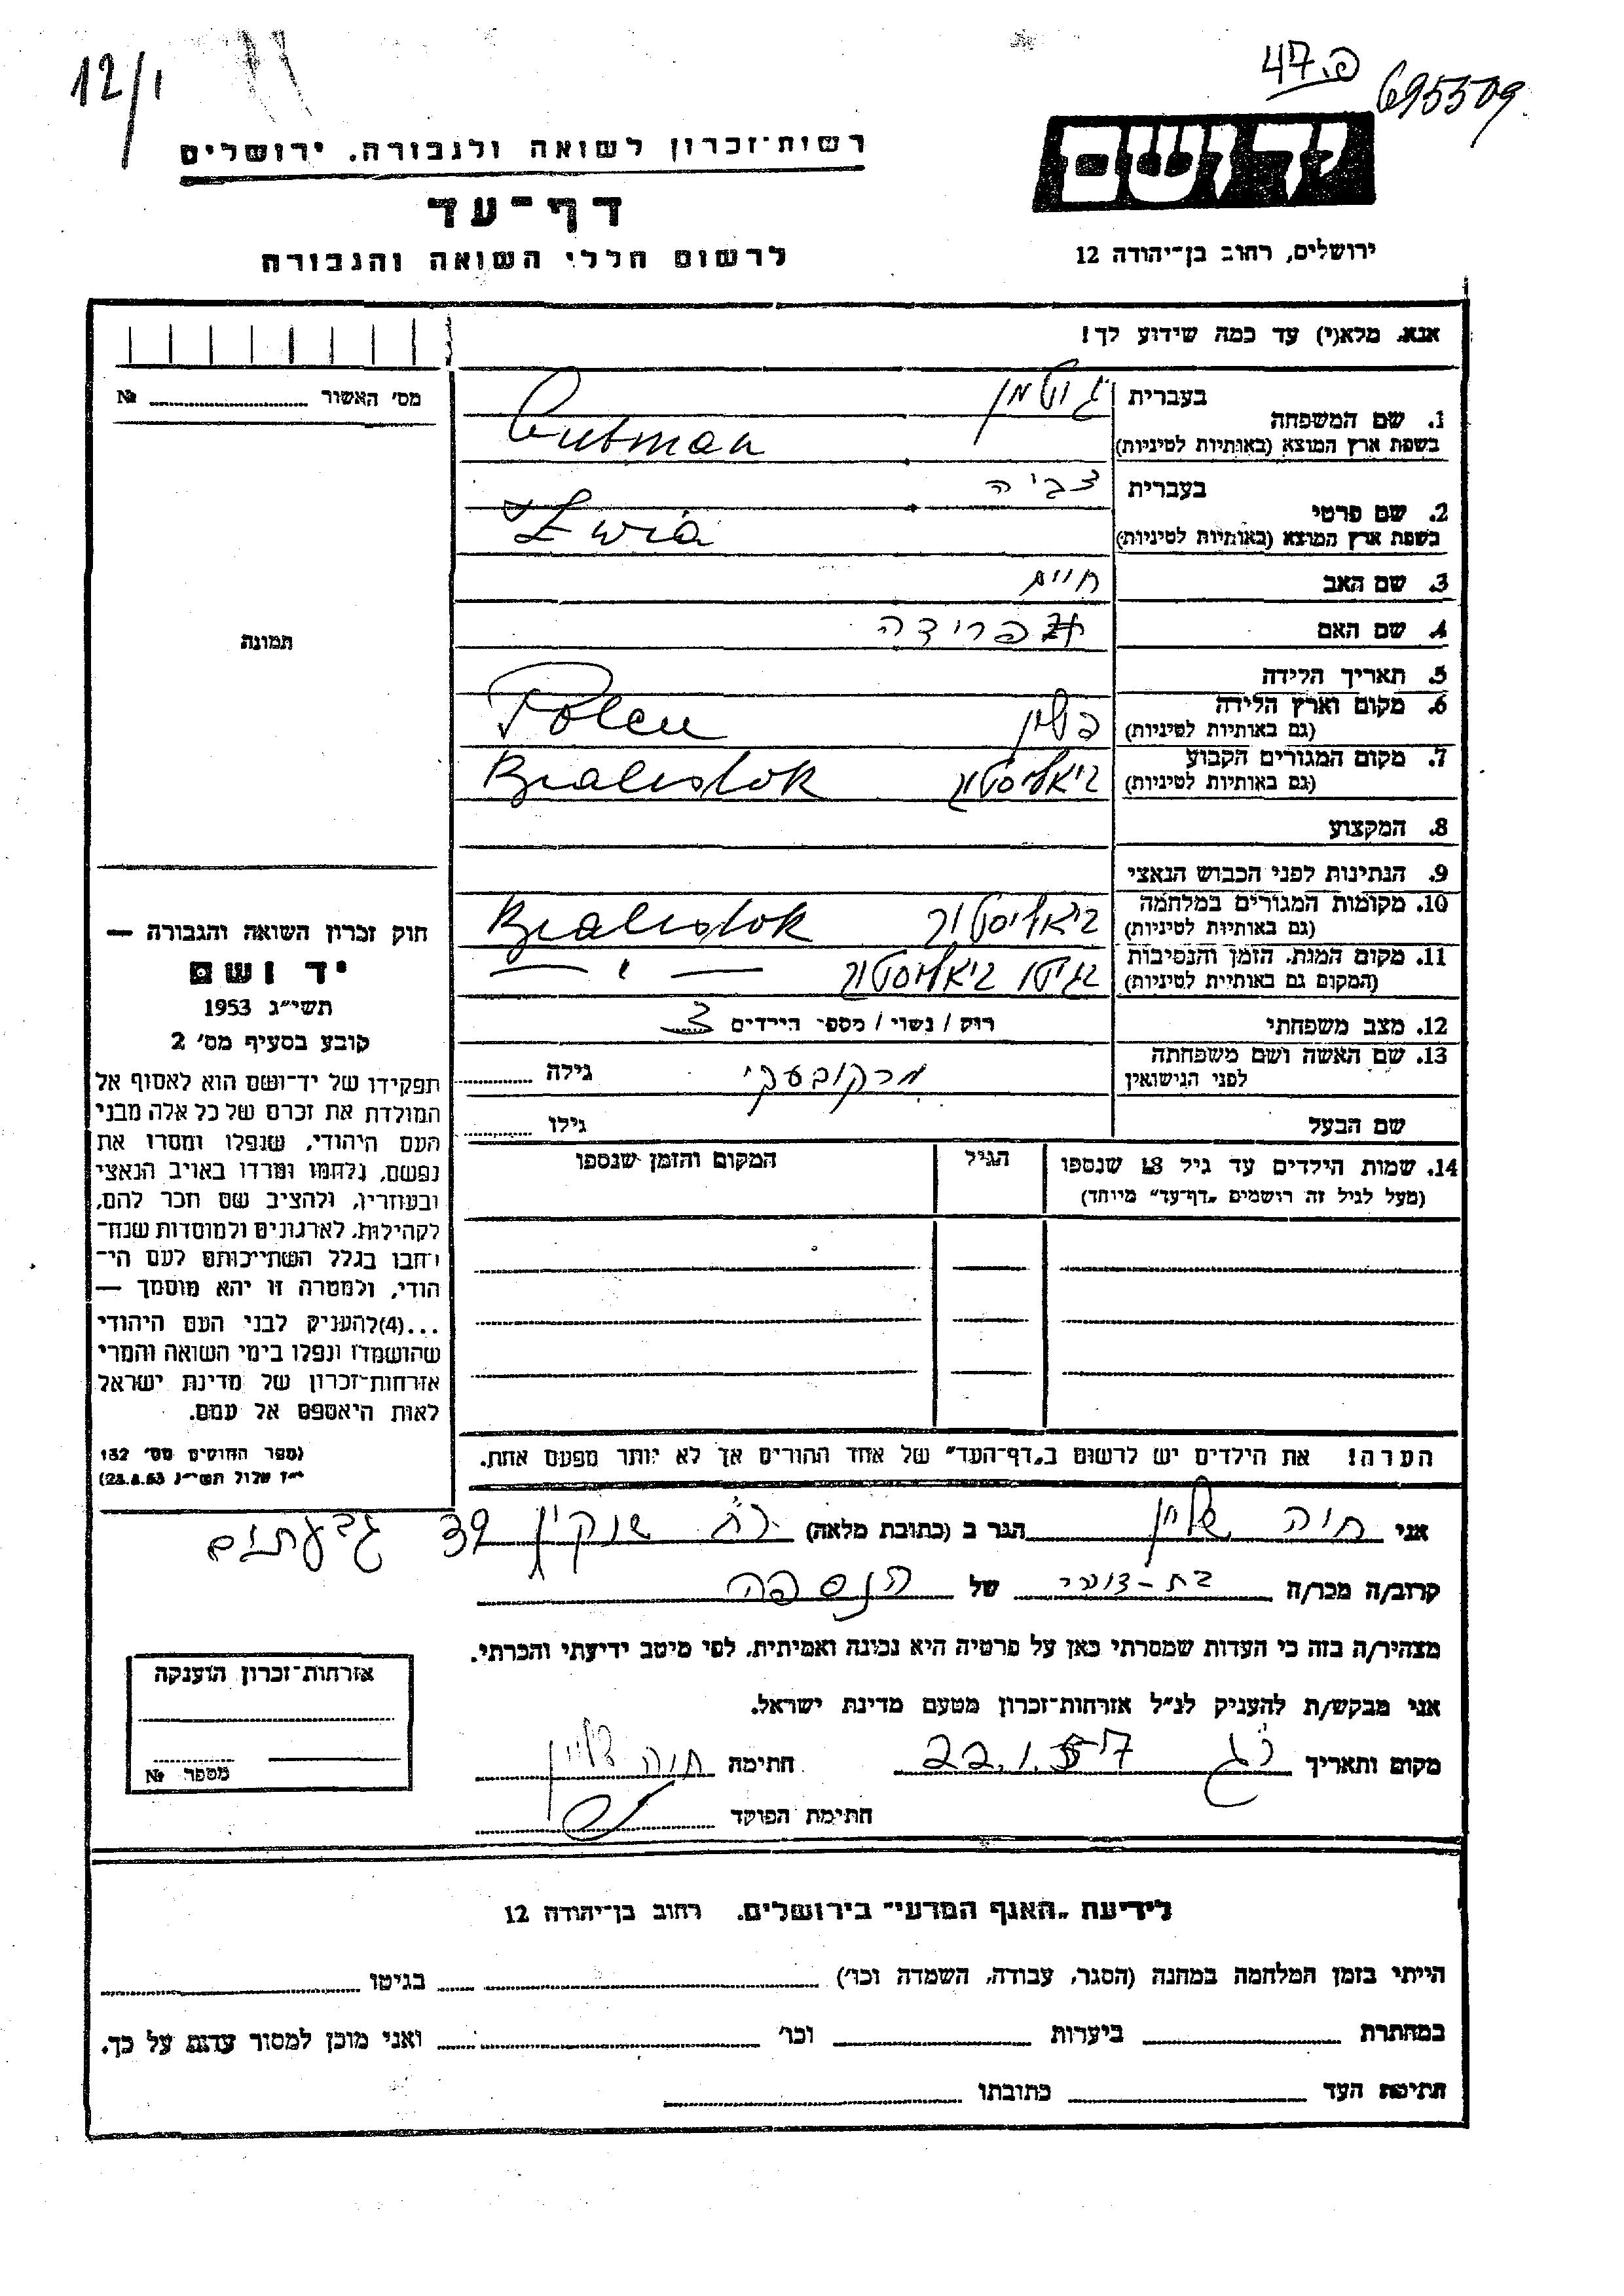 12/1
47.פ
695509
רשות־זכרון לשואה ולגבורה. ירושלים
דף־עד
לרשום חללי השואה והגבורה
יד ושם
ירושלים, רחוב בן־יהודה 12
אנא. מלא(י) עד כמה שידוע לך!
מס׳ האשור № 
1. שם המשפחה
בעברית גוטמן
בשפת ארץ המוצא (באותיות לטיניות) Gutman
2. שם פרטי
בעברית צביה
בשפת ארץ המוצא (באותיות לטיניות) Zwia
3. שם האב חיים
4. שם האם פרידה
5. תאריך הלידה
6. מקום וארץ הלידה
(גם באותיות לטיניות) פולין Polen
7. מקום המגורים הקבוע
(גם באותיות לטיניות) ביאליסטוק Bialistok
8. המקצוע
9. הנתינות לפני הכבוש הנאצי
10. מקומות המגורים במלחמה
(גם באותיות לטיניות) ביאליסטוק Bialistok
11. מקום המות. הזמן והנסיבות
(המקום גם באותיות לטיניות) גיטו ביאליסטוק — " —
12. מצב משפחתי רוק / נשוי / מספר הילדים 3
13. שם האשה ושם משפחתה
לפני הנישואין מרקובצקי גילה
שם הבעל גילו
14. שמות הילדים עד גיל 18 שנספו
(מעל לגיל זה רושמים „דף־עד״ מיוחד)
הגיל
המקום והזמן שנספו
הערה! את הילדים יש לרשום ב„דף־העד״ של אחד ההורים אך לא יותר מפעם אחת.
תמונה
חוק זכרון השואה והגבורה —
יד ושם
תשי״ג 1953
קובע בסעיף מס׳ 2
תפקידו של יד־ושם הוא לאסוף אל
המולדת את זכרם של כל אלה מבני
העם היהודי, שנפלו ומסרו את
נפשם, נלחמו ומרדו באויב הנאצי
ובעוזריו, ולהציב שם וזכר להם,
לקהילות, לארגונים ולמוסדות שנח־
רבו בגלל השתייכותם לעם הי־
הודי, ולמטרה זו יהא מוסמך —
...(4)להעניק לבני העם היהודי
שהושמדו ונפלו בימי השואה והמרי
אזרחות־זכרון של מדינת ישראל
לאות היאספם אל עמם.
(ספר החוקים מס׳ 132
י״ז אלול תשי״ג 28.8.53)
אני חוה שליין הגר ב (כתובת מלאה) רח׳ שנקין 39 גבעתים
קרוב/ה מכר/ה בת-דודי של הנספה
מצהיר/ה בזה כי העדות שמסרתי כאן על פרטיה היא נכונה ואמיתית. לפי מיטב ידיעתי והכרתי.
אני מבקש/ת להעניק לנ״ל אזרחות־זכרון מטעם מדינת ישראל.
מקום ותאריך ר״ג 22.1.57 חתימה חוה שליין
חתימת הפוקד
אזרחות־זכרון הוענקה
מספר №
לידיעת „האגף המדעי״ בירושלים. רחוב בן־יהודה 12
הייתי בזמן המלחמה במחנה (הסגר, עבודה, השמדה וכו׳) בגיטו
במחתרת ביערות וכו׳ ואני מוכן למסור עדות על כך.
חתימת העד כתובתו